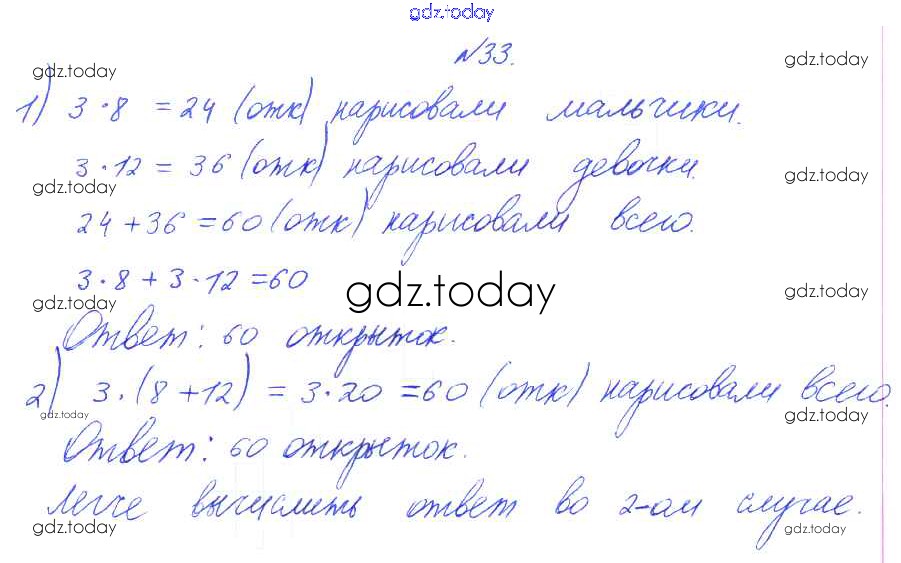 gdz.today
№33.
gdz.today gdz.today
1) 3·8 = 24 (отк) нарисовали мальчики.
3·12 = 36 (отк) нарисовали девочки.
gdz.today gdz.today
24+36=60 (отк) нарисовали всего.
3·8+3·12=60
gdz.today gdz.today gdz.today
Ответ: 60 открыток.
2) 3·(8+12) = 3·20 =60 (отк) нарисовали всего.
gdz.today gdz.today
Ответ: 60 открыток.
Легче вычислить ответ во 2-ом случае.
gdz.today gdz.today